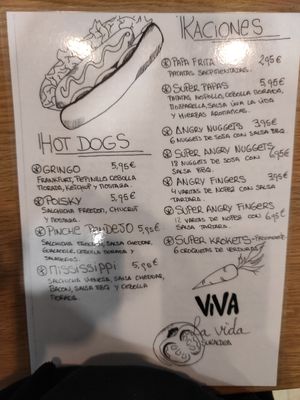 HOT DOGS
GRINGO 5,95€
FRANKFURT, PEPINILLO CEBOLLA
DORADA, KETCHUP Y MOSTAZA.
POLSKY 5,95€
SALCHICHA FREEDON, CHUCRUT
Y MOSTAZA.
PINCHE PENDEJO 5,90€
SALCHICHA FREEDON, SALSA CHEDDAR,
GUACAMOLE, CEBOLLA DORADA Y
JALAPEÑOS.
MISSISSIPPI 5,90€
SALCHICHA VIENESA, SALSA CHEDDAR,
BACON, SALSA BBQ Y CEBOLLA
DORADA.
IKACIONES
PAPA FRITA 2,95€
PATATAS SALPIMENTADAS.
SUPER PAPAS 5,95€
PATATAS, NOPOLLO, CEBOLLA DORADA,
MOZZARELLA, SALSA VIVA LA VIDA
Y HIERBAS AROMATICAS.
ANGRY NUGGETS 3,95€
6 NUGGETS DE SOJA CON SALSA BBQ.
SUPER ANGRY NUGGETS
12 NUGGETS DE SOJA CON 6,95€
SALSA BBQ.
ANGRY FINGERS 3,95€
4 VARITAS DE NOPEZ CON SALSA
TARTARA.
SUPER ANGRY FINGERS
12 VARITAS DE NOPEZ CON 6,95€
SALSA TARTARA.
SUPER KROKETS
6 CROQUETAS DE VERDURAS
VIVA
La vida